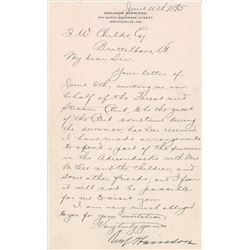 BENJAMIN HARRISON,
874 NORTH DELAWARE STREET,
INDIANAPOLIS, IND.
June 11th 1895
F. W. Childs, Esq
Brattleboro, Vt
My dear Sir:
Your letter of
June 6th, inviting me, on
behalf of the Forest and
Stream Club, to be the guest
of the Club sometime during
the summer, has been received.
I have made arrangements
to spend a part of the summer
in the Adirondacks with Mrs
McKee and the children, and
some other friends, and I fear
it will not be possible
for me to visit you.
I am very much obliged
to you for your invitation.
Very truly yours
Benj Harrison